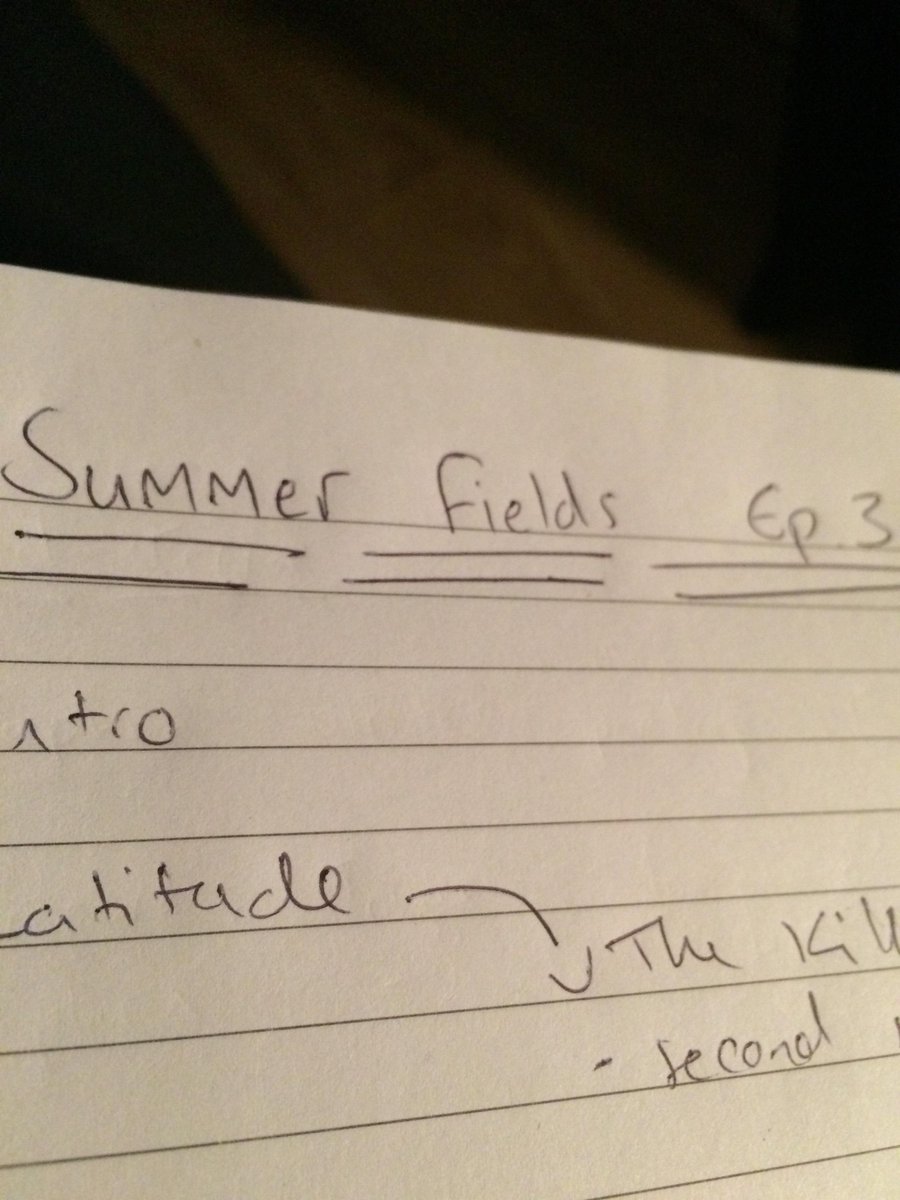 Summer Fields Ep.3
ntro
atitude
The Kill
- second